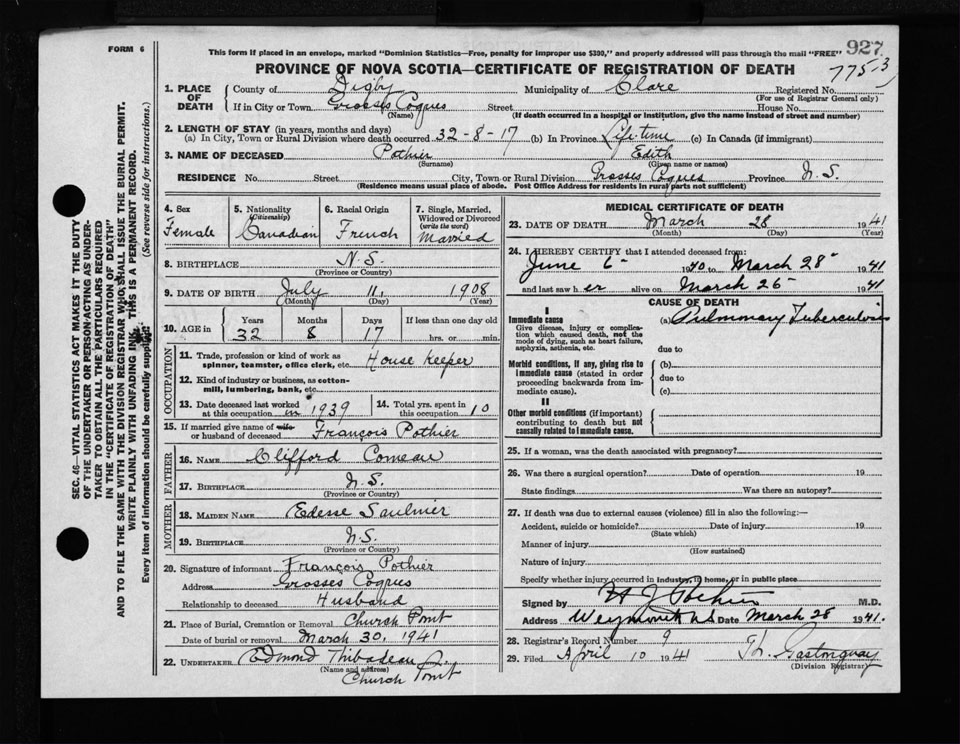 FORM 6
This form if placed in an envelope, marked "Dominion Statistics—Free, penalty for improper use $300," and properly addressed will pass through the mail "FREE"
927
7753
PROVINCE OF NOVA SCOTIA—CERTIFICATE OF REGISTRATION OF DEATH
1. PLACE OF DEATH
County of Digby Municipality of Clare Registered No.
(For use of Registrar General only)
If in City or Town Grosses Coques Street House No.
(Name) (If death occurred in a hospital or institution, give the name instead of street and number)
2. LENGTH OF STAY (in years, months and days)
(a) In City, Town or Rural Division where death occurred 32-8-17 (b) In Province Life time (c) In Canada (if immigrant)
3. NAME OF DECEASED Pothier Edith
(Surname) (Given name or names)
RESIDENCE No. Street City, Town or Rural Division Grosses Coques Province N.S.
(Residence means usual place of abode. Post Office Address for residents in rural parts not sufficient)
4. Sex Female
5. Nationality (Citizenship) Canadian
6. Racial Origin French
7. Single, Married, Widowed or Divorced (write the word) Married
8. BIRTHPLACE N.S.
(Province or Country)
9. DATE OF BIRTH July 11, 1908
(Month) (Day) (Year)
10. AGE in Years Months Days If less than one day old
32 8 17 hrs. or min.
OCCUPATION
11. Trade, profession or kind of work as spinner, teamster, office clerk, etc. House Keeper
12. Kind of industry or business, as cotton-mill, lumbering, bank, etc.
13. Date deceased last worked at this occupation in 1939
14. Total yrs. spent in this occupation 10
15. If married give name of wife or husband of deceased François Pothier
FATHER
16. NAME Clifford Comeau
17. BIRTHPLACE N.S.
(Province or Country)
MOTHER
18. MAIDEN NAME Edesse Saulnier
19. BIRTHPLACE N.S.
(Province or Country)
20. Signature of informant François Pothier
Address Grosses Coques
Relationship to deceased Husband
21. Place of Burial, Cremation or Removal Church Point
Date of burial or removal March 30, 1941
22. UNDERTAKER Edmond Thibodeau
(Name and address)
Church Point
MEDICAL CERTIFICATE OF DEATH
23. DATE OF DEATH March 28 1941
(Month) (Day) (Year)
24. I HEREBY CERTIFY that I attended deceased from:
June 6 1940 to March 28 1941
and last saw her alive on March 26 1941
CAUSE OF DEATH
I
Immediate cause
Give disease, injury or complication which caused death, not the mode of dying, such as heart failure, asphyxia, asthenia, etc.
(a) Pulmonary Tuberculosis
due to
Morbid conditions, if any, giving rise to immediate cause (stated in order proceeding backwards from immediate cause).
(b)
due to
(c)
II
Other morbid conditions (if important) contributing to death but not causally related to immediate cause.
25. If a woman, was the death associated with pregnancy?
26. Was there a surgical operation? Date of operation 19
State findings Was there an autopsy?
27. If death was due to external causes (violence) fill in also the following:—
Accident, suicide or homicide? Date of injury 19
(State which)
Manner of injury
(How sustained)
Nature of injury
Specify whether injury occurred in industry, in home, or in public place
Signed by M.D.
Address Weymouth N.S. Date March 28 1941.
28. Registrar's Record Number 9
29. Filed April 10 1941 Th. Gastonguay
(Division Registrar)
SEC. 46—VITAL STATISTICS ACT MAKES IT THE DUTY
OF THE UNDERTAKER OR PERSON ACTING AS UNDER-
TAKER TO OBTAIN ALL THE PARTICULARS REQUIRED
IN THE "CERTIFICATE OF REGISTRATION OF DEATH"
AND TO FILE THE SAME WITH THE DIVISION REGISTRAR WHO SHALL ISSUE THE BURIAL PERMIT.
WRITE PLAINLY WITH UNFADING INK. THIS IS A PERMANENT RECORD.
Every item of information should be carefully supplied. (See reverse side for instructions.)